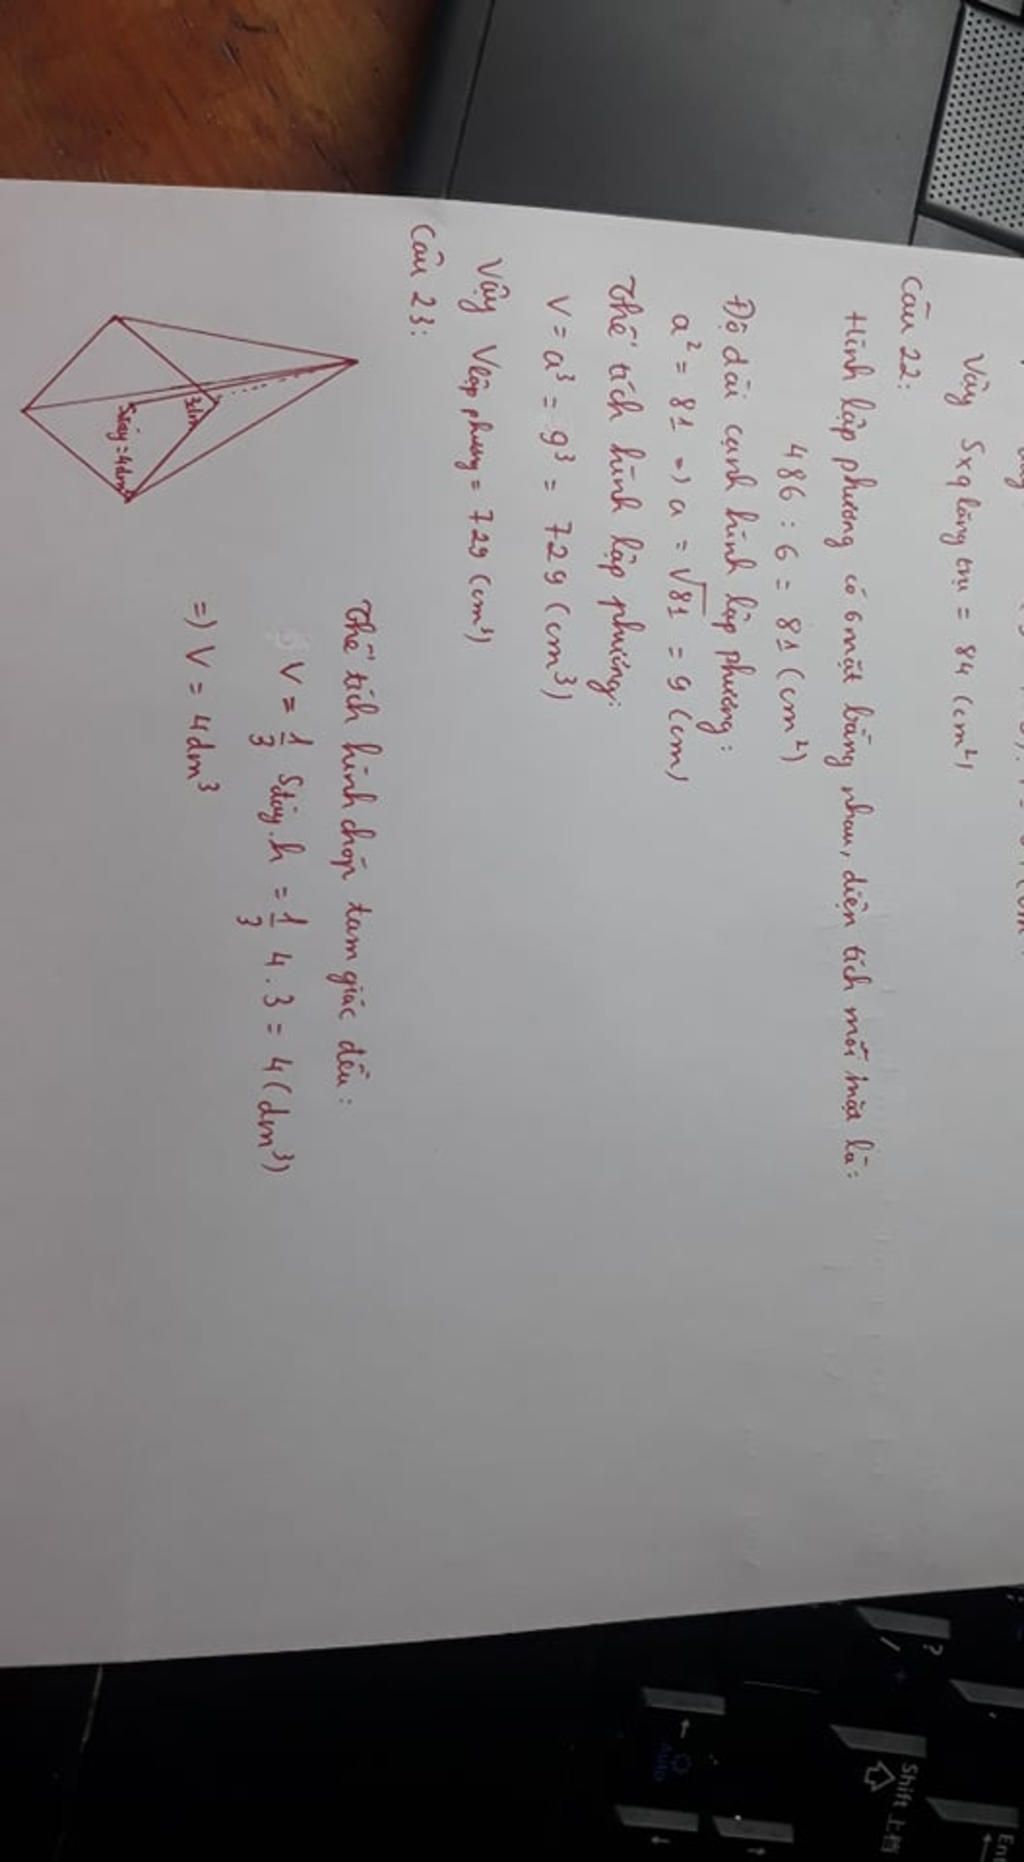 Vậy Sxq lăng trụ = 84 (cm²)
Câu 22:
Hình lập phương có 6 mặt bằng nhau, diện tích mỗi mặt là:
486 : 6 = 81 (cm²)
Độ dài cạnh hình lập phương:
a² = 81 => a = √81 = 9 (cm)
Thể tích hình lập phương:
V = a³ = 9³ = 729 (cm³)
Vậy Vlập phương = 729 (cm³)
Câu 23:
3dm
Sđáy = 4dm
Thể tích hình chóp tam giác đều:
V = 1/3 Sđáy . h = 1/3 4 . 3 = 4 (dm³)
=> V = 4dm³
?
/
Shift 上档
Auto